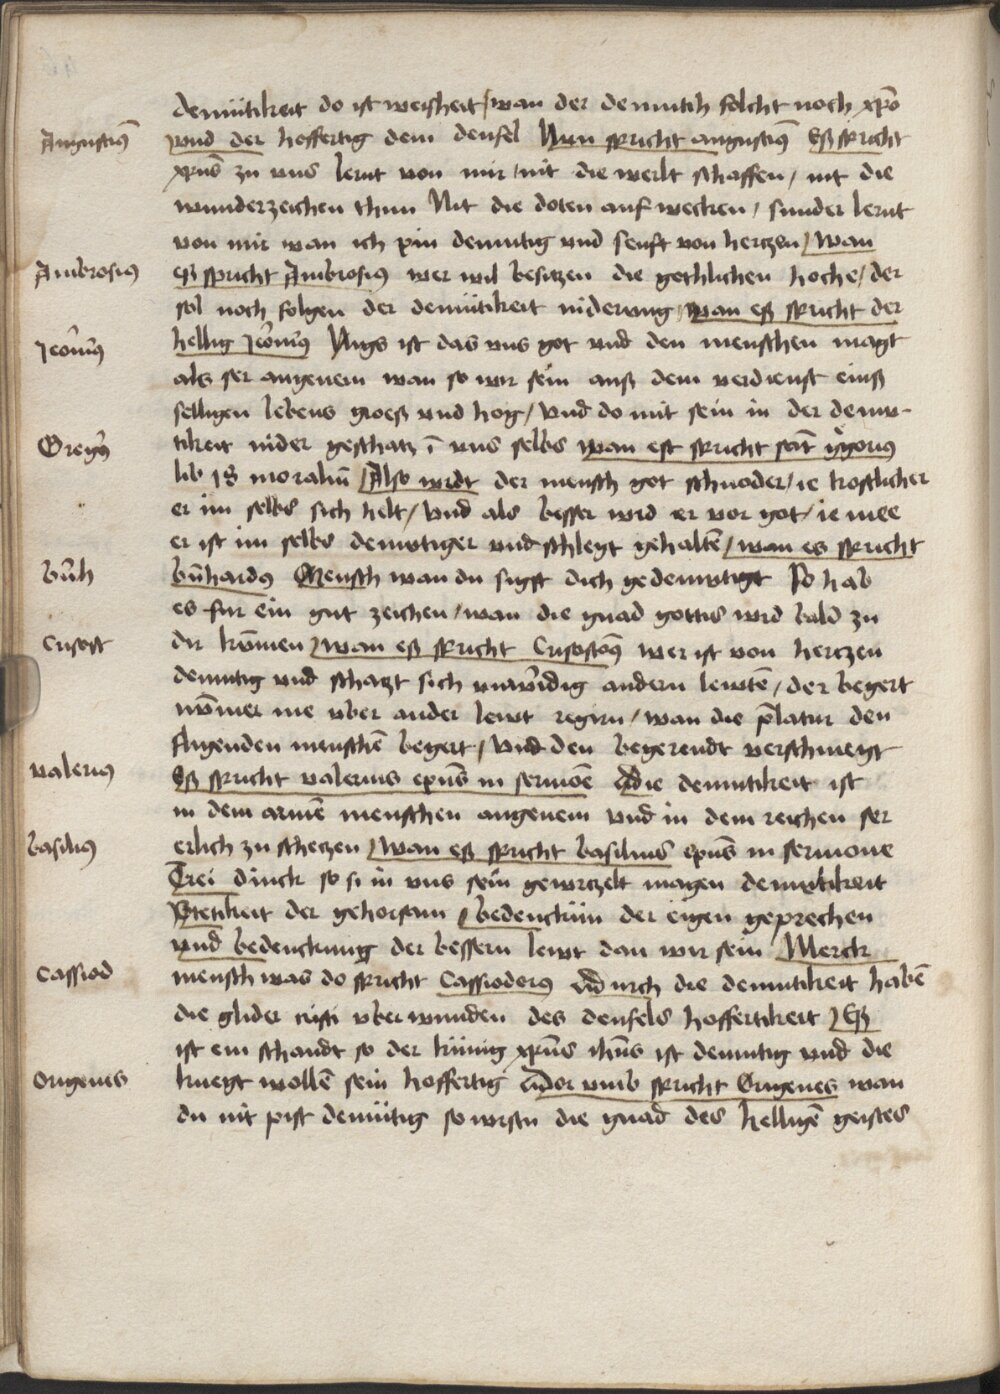 demütikeit do ist weisheit / wan der demutich folcht noch xp̄o
Augustinꝰ
vnd der hoffertig dem deufel Nun spricht augustinꝰ Eß spricht
xp̄us zu vns lernt von mir / nit die werlt schaffen / nit die
wunderzeichen thun Nit die doten auf wecken / sunder lernt
von mir wan ich pin demutig vnd senft von hertzen / Wan
Ambrosiꝰ
eß spricht Ambrosiꝰ wer wil besitzen die gothlichen hoche / der
sol noch folgen der demütikeit niderung / wan eß spricht der
Jeōnim̄ꝰ
hellig Jeōnim̄ꝰ Nigs ist das vns got vnd den menschen magt
als ser angenem wan so wir sein auß dem verdienst einß
selligen lebens groeß vnd hog / vnd do mit sein in der demu-
Gregꝰ
tikeit nider geschatz ī vns selbs wan est spricht sant g̍gorius
lib 18 moraliū / Also wirdt der mensch got schnoder / ie kostlicher
er im selbs sich helt / vnd als besser wird er vor got / ie mee
er ist im selbs demutiger vnd schlegt gehaltē / wan es spricht
bn̄h
bn̄hardꝰ Mensch wan du sigst dich gedemutigt So hab
es fur ein gut zeichen / wan die gnad gottis wird bald zu
Crisost
dir kūmen / wan eß spricht Crisostōꝰ wer ist von hertzen
demutig vnd schatzt sich vnwirdig andern lewtē / der begert
nūmer me vber ander lewt regirn / wan die p̄latur den
fligenden menschē begert / vnd den begerendt verschmegt
valeriꝰ
Eß spricht valerius ep̄us in sermōe die demutikeit ist
in dem armē menschen angenem vnd in dem reichen ser
basiliꝰ
erlich zu schetzen / wan eß spricht basilius ep̄us in sermone
Trei dinck so si in vns sein gewrtzelt magen demutikeit
Stetikeit der gehorsam / bedenckün der eigen geprechen
vnd bedenckung der bessern lewt dan wir sein / Merck
Cassiod
mensch was do spricht Cassiodorꝰ durch die demutikeit habē
die glider cristi vber wunden des deufels hoffertikeit / Eß
ist ein schandt so der künig xp̄us ih̄us ist demutig vnd die
Origenes
knegt wollē sein hoffertig dor vmb spricht Origenes wan
du nit pist demütig so wirstu die gnad des helligē geistes